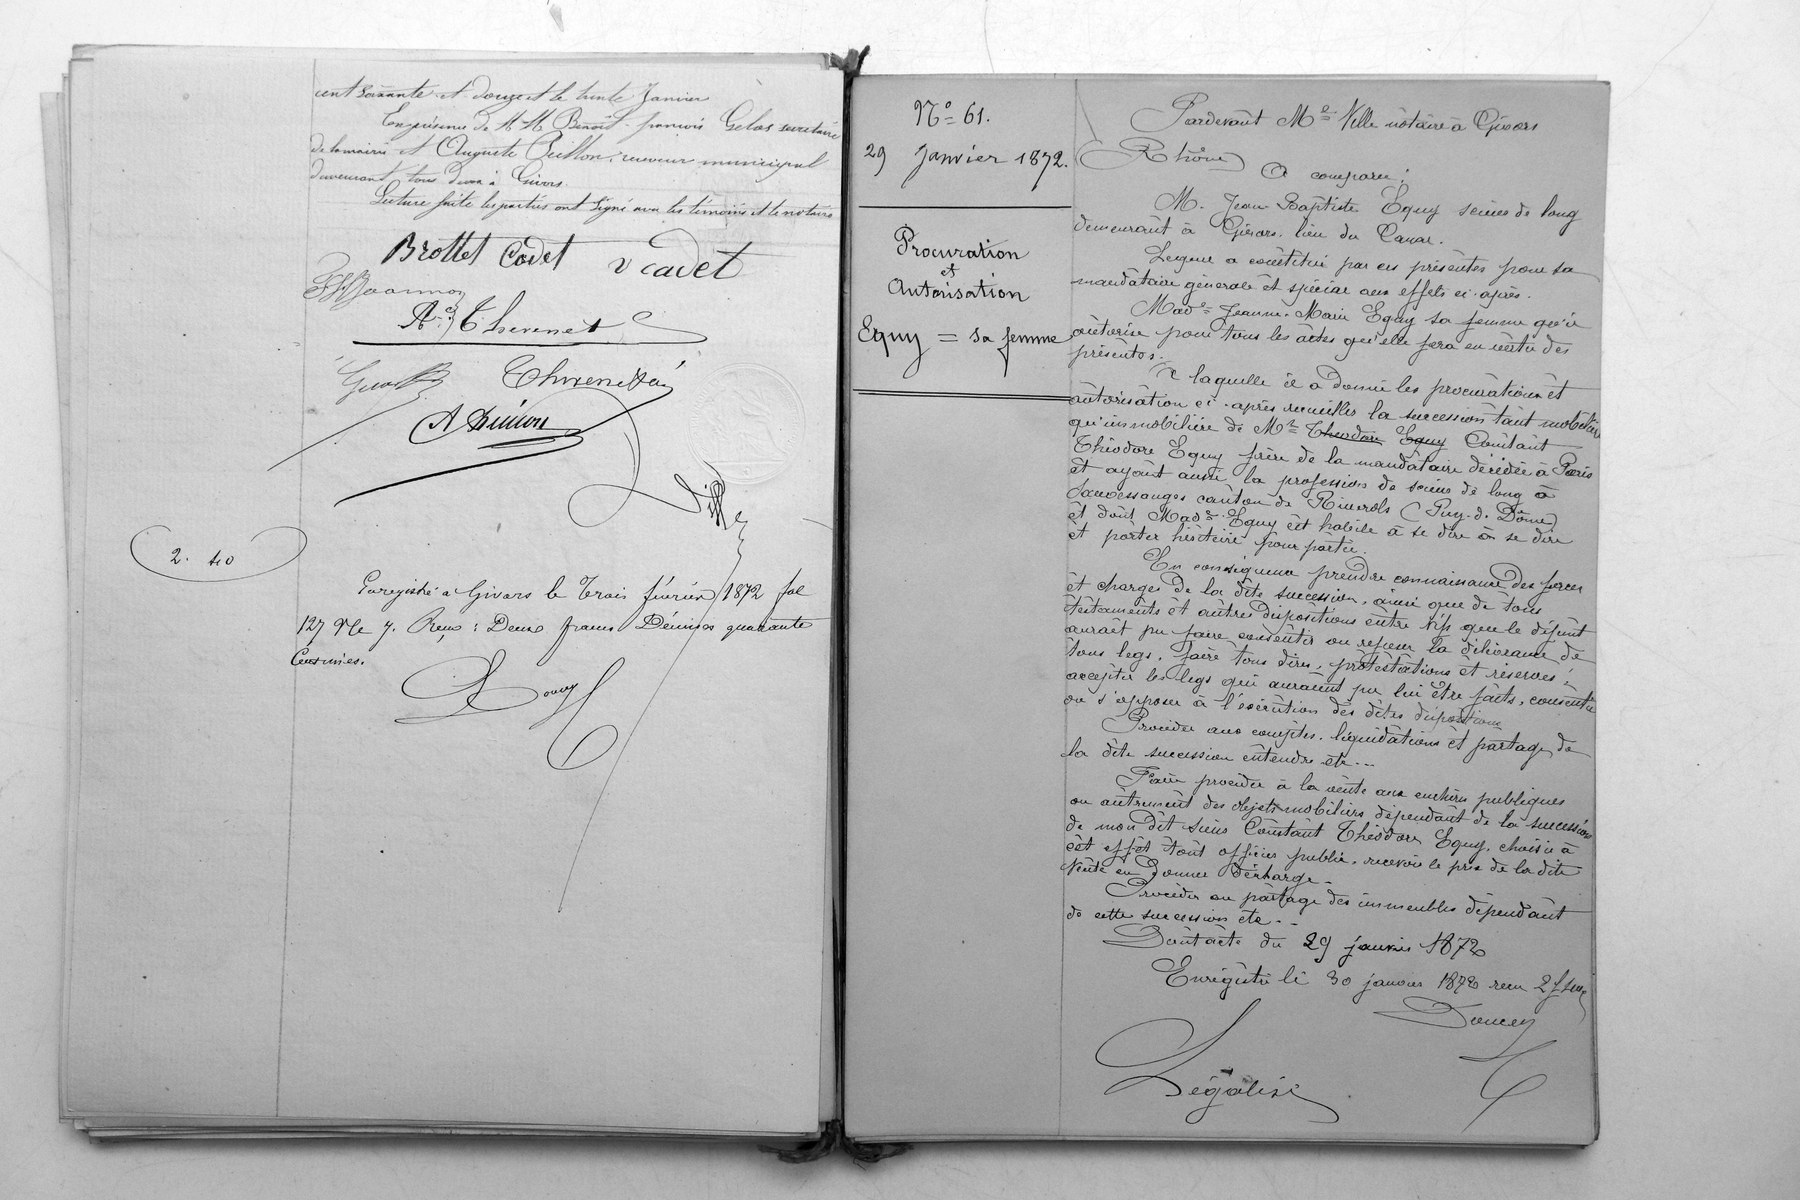 cent soixante et douze et le trente Janvier
En présence de M M Benoit-françois Gelas secrétaire
de la mairie et Auguste receveur municipal
demeurant tous deux à Givors.
Lecture faite les parties ont signé avec les témoins et le notaire
Brottet Cadet v cadet
A. Thevenet
Thevenet
Ville
2. 40
Enregistré à Givors le trois février 1872 fol
127 Vo c 7. Reçu : Deux francs Décimes quarante
Centimes.
Doucey
No 61.
29 Janvier 1872.
Procuration
et
Autorisation
Eguy = sa femme
Pardevant Me Ville notaire à Givors
(Rhône)
A comparu :
M. Jean-Baptiste Eguy scieur de long
demeurant à Givors. lieu du Canal.
Lequel a constitué par ces présentes pour sa
mandataire générale et spéciale aux effets ci-après.
Made Jeanne-Marie Eguy sa femme qu'il
autorise pour tous les actes qu'elle fera en vertu des
présentes.
A laquelle il a donné les procuration et
autorisation ci-après recueillir la succession tant mobilière
qu'immobilière de Mr Theodore Eguy Constant
Théodore Eguy frère de la mandataire décédée à Paris
et ayant aussi la profession de scieur de long à
Sauvessanges canton de Riverols (Puy-de-Dôme)
et dont Made Eguy est habile à se dire à se dire
et porter héritière pour partie.
En conséquence prendre connaissance des forces
et charges de la dite succession, ainsi que de tous
testaments et autres dispositions entre vifs que le défunt
aurait pu faire consentir ou refuser la délivrance de
tous legs. faire tous dires, protestations et réserves,
accepter les legs qui auraient pu lui être faits, consentir
ou s'opposer à l'exécution des dites dispositions
Procéder aux comptes. liquidations et partage de
la dite succession entendre etc...
Faire procéder à la vente aux enchères publiques
ou autrement des objets mobiliers dépendant de la succession
de mon dit sieur Constant Théodore Eguy, choisir à
cet effet tout officier public, recevoir le prix de la dite
Vente en donner décharge.
Procéder au partage des immeubles dépendant
de cette succession etc..
Dont acte du 29 janvier 1872
Enregistré le 30 janvier 1872 reçu 2f
Doucey
Légalisé